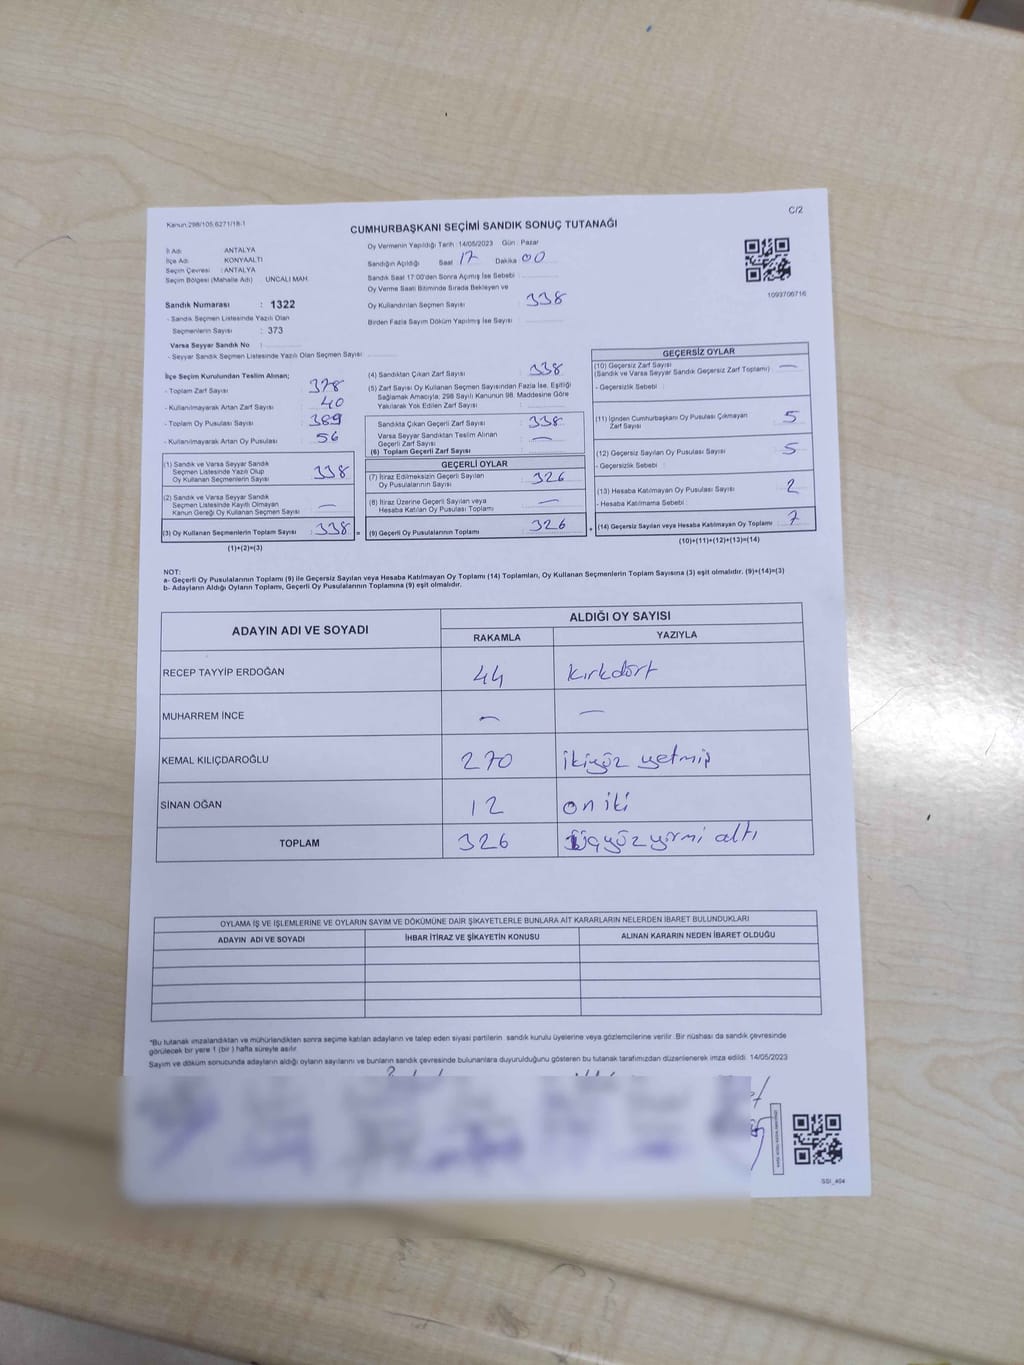 Kanun:298/105;6271/18-1
C/2
CUMHURBAŞKANI SEÇİMİ SANDIK SONUÇ TUTANAĞI
İl Adı : ANTALYA
İlçe Adı : KONYAALTI
Seçim Çevresi : ANTALYA
Seçim Bölgesi (Mahalle Adı) : UNCALI MAH.
Sandık Numarası : 1322
- Sandık Seçmen Listesinde Yazılı Olan
Seçmenlerin Sayısı : 373
Varsa Seyyar Sandık No :
- Seyyar Sandık Seçmen Listesinde Yazılı Olan Seçmen Sayısı :
Oy Vermenin Yapıldığı Tarih : 14/05/2023 Gün : Pazar
Sandığın Açıldığı Saat : 17 Dakika : 00
Sandık Saat 17:00'den Sonra Açılmış İse Sebebi :
Oy Verme Saati Bitiminde Sırada Bekleyen ve
Oy Kullandırılan Seçmen Sayısı : 338
Birden Fazla Sayım Döküm Yapılmış İse Sayısı :
1093706716
İlçe Seçim Kurulundan Teslim Alınan;
- Toplam Zarf Sayısı : 378
- Kullanılmayarak Artan Zarf Sayısı : 40
- Toplam Oy Pusulası Sayısı : 389
- Kullanılmayarak Artan Oy Pusulası : 56
(1) Sandık ve Varsa Seyyar Sandık
Seçmen Listesinde Yazılı Olup
Oy Kullanan Seçmenlerin Sayısı : 338
(2) Sandık ve Varsa Seyyar Sandık
Seçmen Listesinde Kayıtlı Olmayan
Kanun Gereği Oy Kullanan Seçmen Sayısı : —
(3) Oy Kullanan Seçmenlerin Toplam Sayısı : 338
(1)+(2)=(3)
(4) Sandıktan Çıkan Zarf Sayısı : 338
(5) Zarf Sayısı Oy Kullanan Seçmen Sayısından Fazla İse, Eşitliği
Sağlamak Amacıyla, 298 Sayılı Kanunun 98. Maddesine Göre
Yakılarak Yok Edilen Zarf Sayısı :
Sandıkta Çıkan Geçerli Zarf Sayısı : 338
Varsa Seyyar Sandıktan Teslim Alınan
Geçerli Zarf Sayısı : —
(6) Toplam Geçerli Zarf Sayısı :
GEÇERLİ OYLAR
(7) İtiraz Edilmeksizin Geçerli Sayılan
Oy Pusulalarının Sayısı : 326
(8) İtiraz Üzerine Geçerli Sayılan veya
Hesaba Katılan Oy Pusulası Toplamı : —
= (9) Geçerli Oy Pusulalarının Toplamı : 326
GEÇERSİZ OYLAR
(10) Geçersiz Zarf Sayısı
(Sandık ve Varsa Seyyar Sandık Geçersiz Zarf Toplamı) : —
- Geçersizlik Sebebi :
(11) İçinden Cumhurbaşkanı Oy Pusulası Çıkmayan
Zarf Sayısı : 5
(12) Geçersiz Sayılan Oy Pusulası Sayısı : 5
- Geçersizlik Sebebi :
(13) Hesaba Katılmayan Oy Pusulası Sayısı : 2
- Hesaba Katılmama Sebebi :
+ (14) Geçersiz Sayılan veya Hesaba Katılmayan Oy Toplamı : 7
(10)+(11)+(12)+(13)=(14)
NOT:
a- Geçerli Oy Pusulalarının Toplamı (9) ile Geçersiz Sayılan veya Hesaba Katılmayan Oy Toplamı (14) Toplamları, Oy Kullanan Seçmenlerin Toplam Sayısına (3) eşit olmalıdır. (9)+(14)=(3)
b- Adayların Aldığı Oyların Toplamı, Geçerli Oy Pusulalarının Toplamına (9) eşit olmalıdır.
ADAYIN ADI VE SOYADI ALDIĞI OY SAYISI
RAKAMLA YAZIYLA
RECEP TAYYİP ERDOĞAN 44 kırkdört
MUHARREM İNCE — —
KEMAL KILIÇDAROĞLU 270 ikiyüz yetmiş
SİNAN OĞAN 12 on iki
TOPLAM 326 üçyüz yirmi altı
OYLAMA İŞ VE İŞLEMLERİNE VE OYLARIN SAYIM VE DÖKÜMÜNE DAİR ŞİKAYETLERLE BUNLARA AİT KARARLARIN NELERDEN İBARET BULUNDUKLARI
ADAYIN ADI VE SOYADI İHBAR İTİRAZ VE ŞİKAYETİN KONUSU ALINAN KARARIN NEDEN İBARET OLDUĞU
*Bu tutanak imzalandıktan ve mühürlendikten sonra seçime katılan adayların ve talep eden siyasi partilerin sandık kurulu üyelerine veya gözlemcilerine verilir. Bir nüshası da sandık çevresinde
görülecek bir yere 1 (bir) hafta süreyle asılır.
Sayım ve döküm sonucunda adayların aldığı oyların sayılarını ve bunların sandık çevresinde bulunanlara duyurulduğunu gösteren bu tutanak tarafımızdan düzenlenerek imza edildi. 14/05/2023
SSI_404